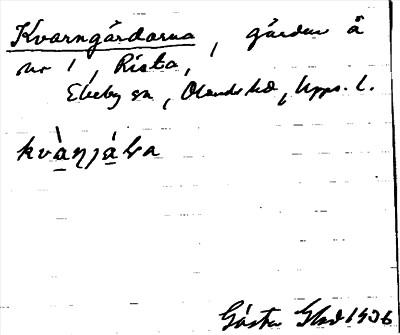 Kvarngårdarna, gården å
nr 1, Rista,
Ekeby sn, Olands hd, Upps. l.
kvànjáɫa
Gösta 1936